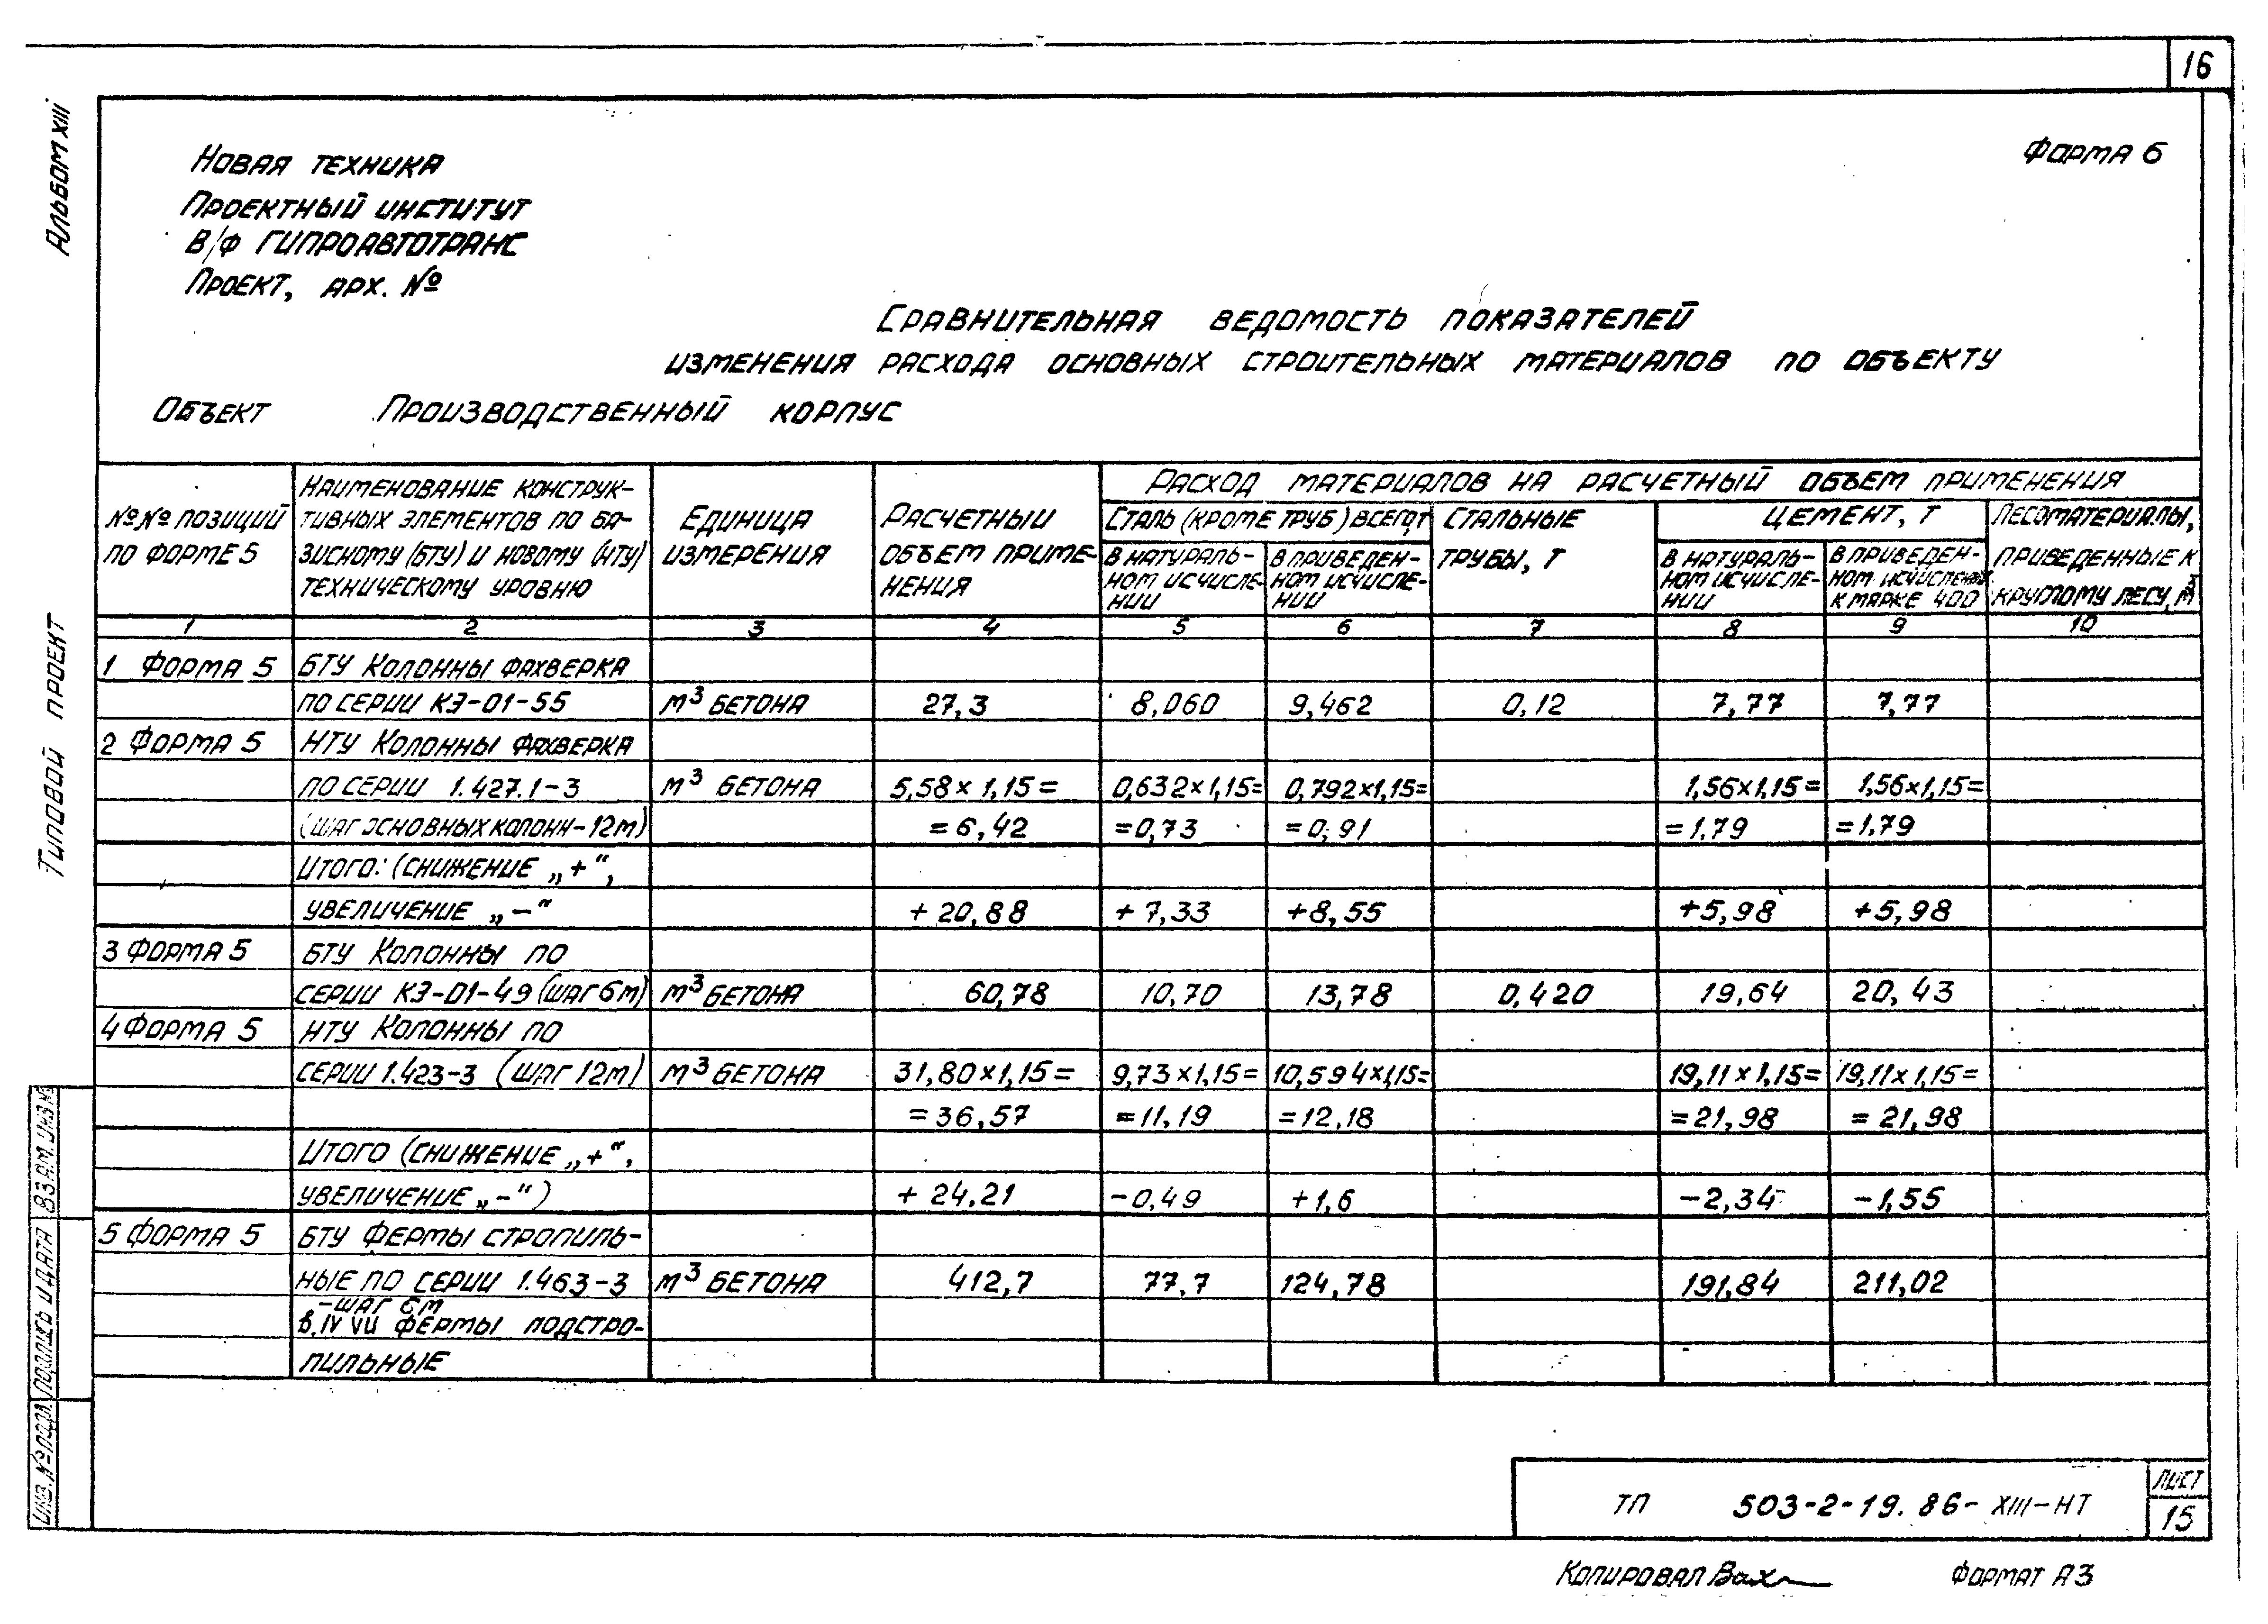 16
Альбом XIII
Типовой проект
Новая техника
Форма 6
Проектный институт
В/ф Гипроавтотранс
Проект, арх. №
Сравнительная ведомость показателей
изменения расхода основных строительных материалов по объекту
Объект Производственный корпус
№№ позиций
по форме 5
Наименование конструк-
тивных элементов по ба-
зисному (БТУ) и новому (НТУ)
техническому уровню
Единица
измерения
Расчетный
объем приме-
нения
Расход материалов на расчетный объем применения
Сталь (кроме труб) всего, т
В натураль-
ном исчисле-
нии
В приведен-
ном исчисле-
нии
Стальные
трубы, т
Цемент, т
В натураль-
ном исчисле-
нии
В приведен-
ном исчислении
к марке 400
Лесоматериалы,
приведенные к
круглому лесу, м³
1 2 3 4 5 6 7 8 9 10
1 Форма 5 БТУ Колонны фахверка
по серии КЭ-01-55 м³ бетона 27,3 8,060 9,462 0,12 7,77 7,77
2 Форма 5 НТУ Колонны фахверка
по серии 1.427.1-3 м³ бетона 5,58×1,15= 0,632×1,15= 0,792×1,15= 1,56×1,15= 1,56×1,15=
(шаг основных колонн-12м) =6,42 =0,73 =0,91 =1,79 =1,79
Итого: (снижение „+“,
увеличение „-“ +20,88 +7,33 +8,55 +5,98 +5,98
3 Форма 5 БТУ Колонны по
серии КЭ-01-49 (шаг 6м) м³ бетона 60,78 10,70 13,78 0,420 19,64 20,43
4 Форма 5 НТУ Колонны по
серии 1.423-3 (шаг 12м) м³ бетона 31,80×1,15= 9,73×1,15= 10,594×1,15= 19,11×1,15= 19,11×1,15=
=36,57 =11,19 =12,18 =21,98 =21,98
Итого (снижение „+“,
увеличение „-“) +24,21 -0,49 +1,6 -2,34 -1,55
5 Форма 5 БТУ Фермы стропиль-
ные по серии 1.463-3 м³ бетона 412,7 77,7 124,78 191,84 211,02
-шаг 6м
фермы подстро-
пильные
Инв. № подл. Подпись и дата Взам. инв. №
ТП 503-2-19.86-XIII-НТ
Лист
15
Копировал Формат А3